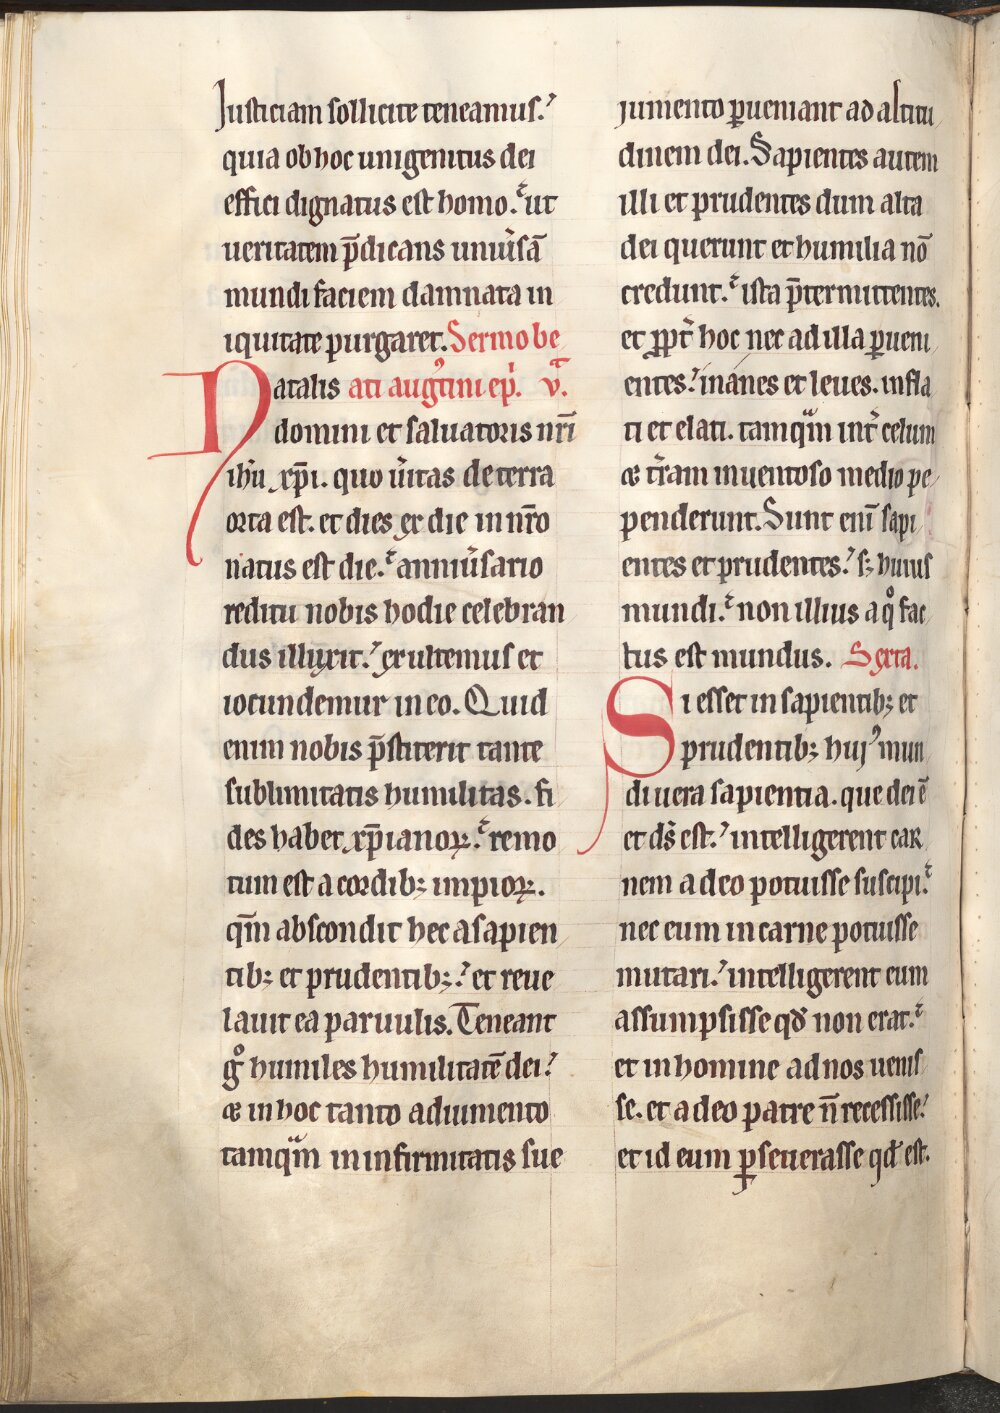 Iusticiam sollicite teneamus.
quia ob hoc unigenitus dei
effici dignatus est homo. ut
ueritatem p̄dicans uniu̓sā
mundi faciem damnata in
iquitate purgaret. Sermo be
Natalis ati augꝰtini ep̓i. v.ͣ
domini et saluatoris nr̄i
ih̓u xp̄i. quo u̓itas de terra
orta est. et dies ex die in nr̄o
natus est die. anniu̓sario
reditu nobis hodie celebran
dus illuxit. exultemus et
iocundemur in eo. Quid
enim nobis p̄stiterit tante
sublimitatis humilitas. fi
des habet xp̄ianoꝝ. remo
tum est a cordibꝫ impioꝝ.
qm̄ abscondit hec a sapien
tibꝫ et prudentibꝫ. et reue
lauit ea paruulis. Teneant
gͦ humiles humilitatē dei.
æ in hoc tanto adiumento
tamqͣm in infirmitatis sue
iumento ꝑueniant ad altitu
dinem dei. Sapientes autem
illi et prudentes dum alta
dei querunt et humilia nō
credunt. ista p̄termittentes.
et ꝓpt̓ hoc nec ad illa ꝑueni
entes. inanes et leues. infla
ti et elati. tamqͣm int̓ celum
æ t̓ram in uentoso medio pe
penderunt. Sunt eni̅ sapi
entes et prudentes. sꝫ huius
mundi. non illius a qͦ fac
tus est mundus. Sexta.
Si esset in sapientibꝫ et
prudentibꝫ hujꝰ mun
di uera sapientia. que dei ē
et ds̄ est. intelligerent car
nem a deo potuisse suscipi.
nec eum in carne potuisse
mutari. intelligerent eum
assumpsisse qđ non erat.
et in homine ad nos uenis
se. et a deo patre n̄ recessisse.
et id eum ꝑseuerasse qđ est.